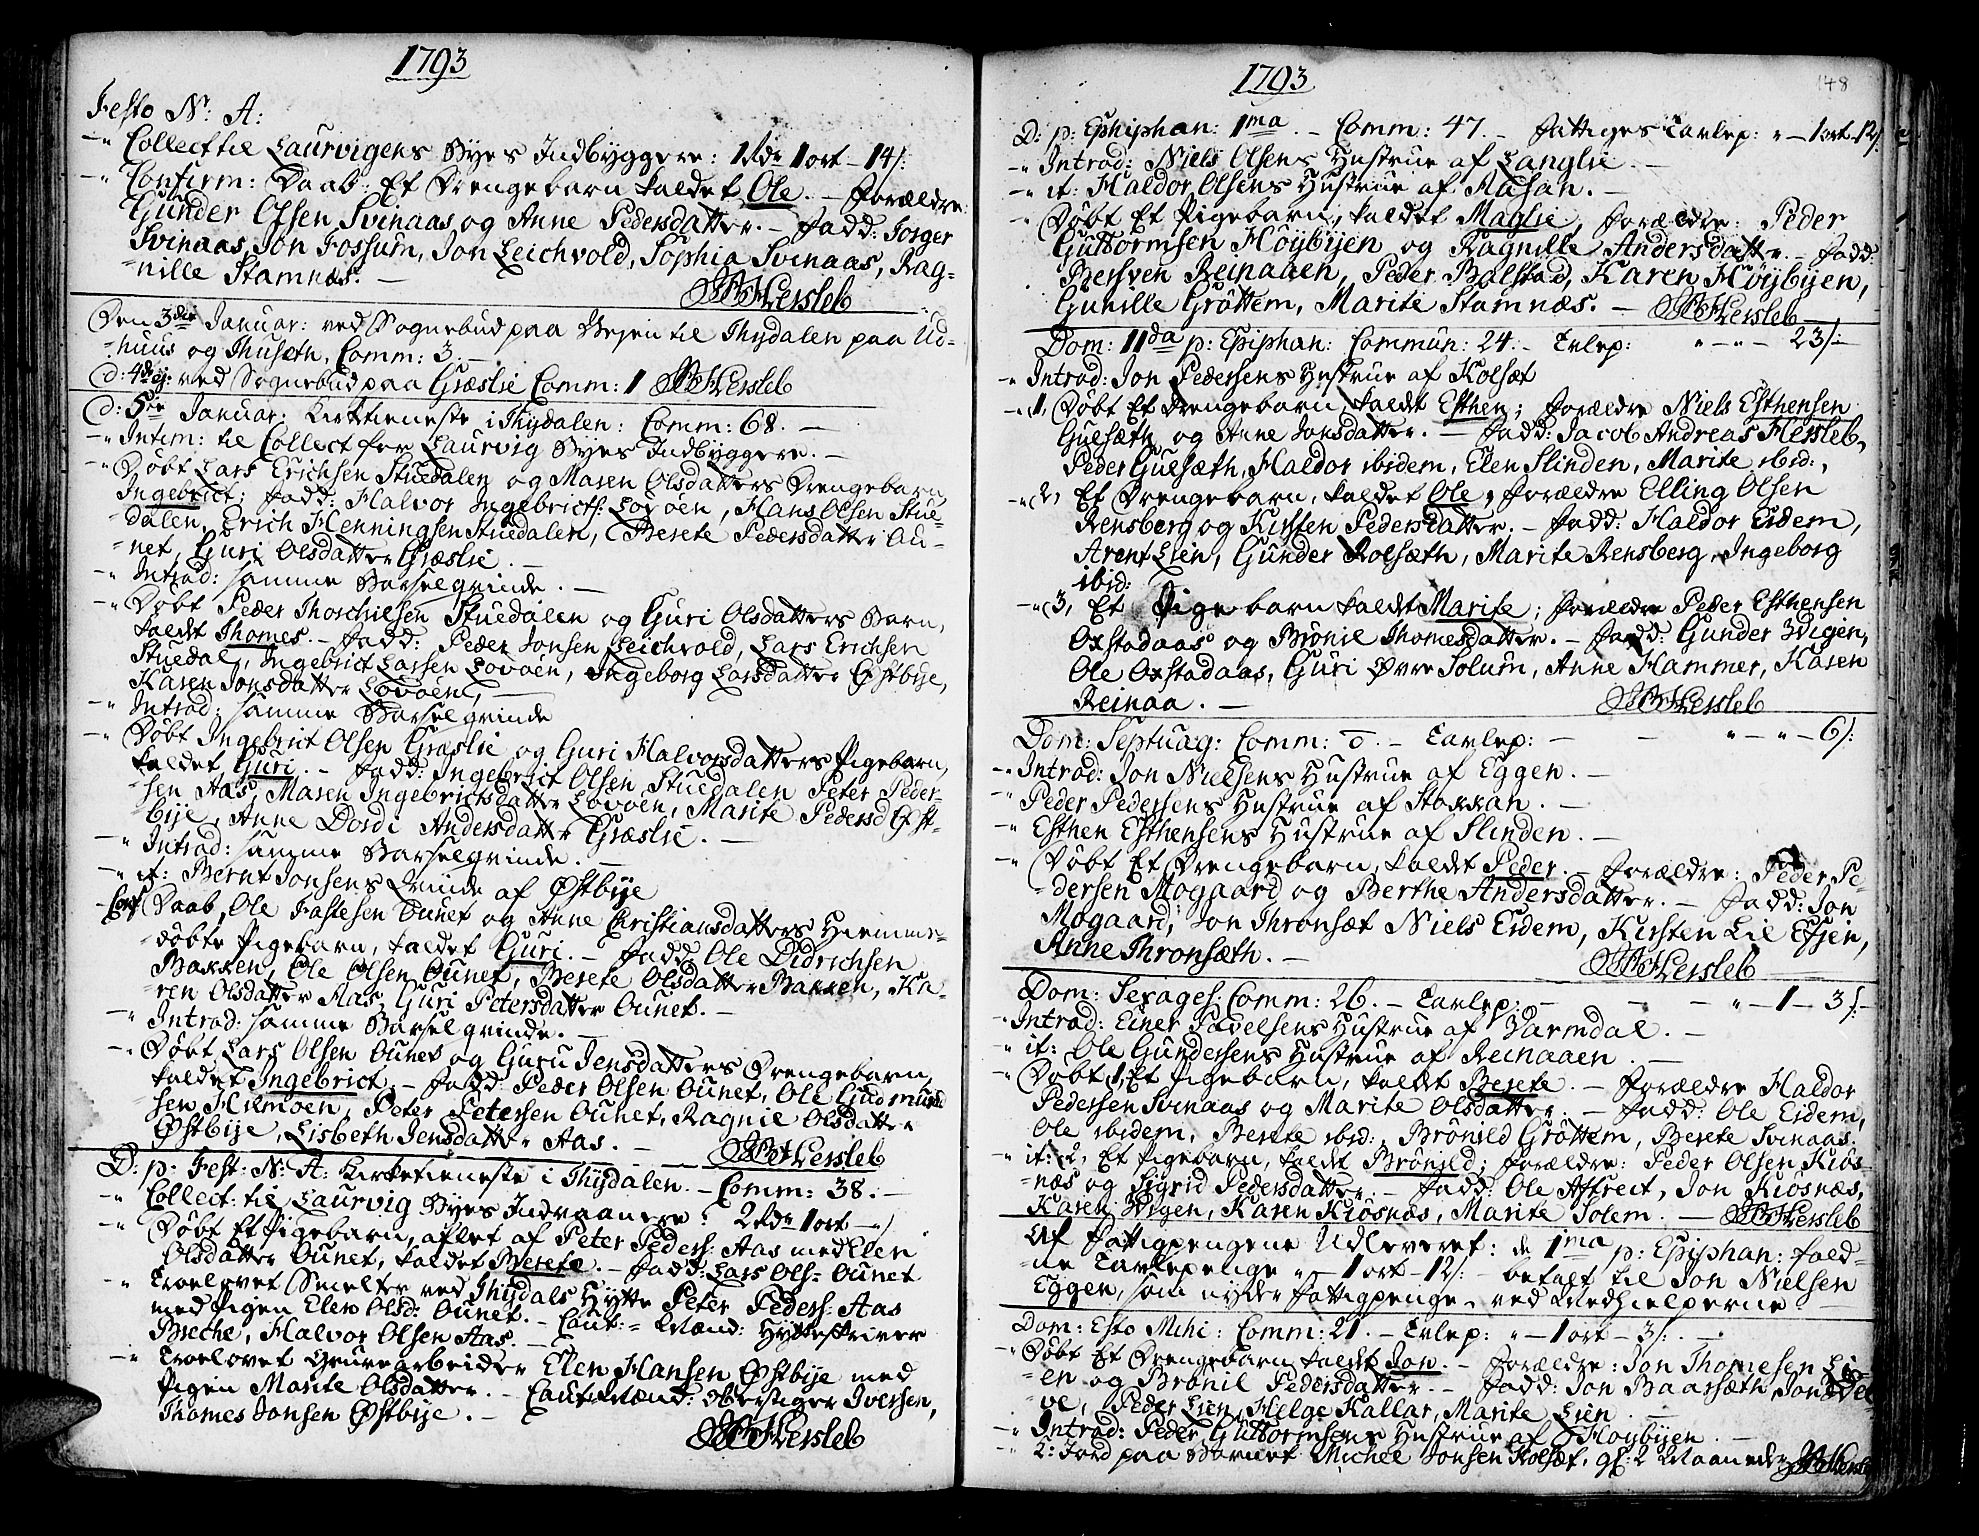 1793
Festo N: A:
-" Collect til Laurvigens Byes Indbyggere: 1 Rdr 1 ort - 14 s:
-" Confirm: Daab: Et Drengebarn kaldet Ole. - Forældre
Gunder Olsen Svinaas og Anne Pedersdatter. - Fadd: Jorger
Svinaas, Jon Fossum, Jon Leichvold, Sophia Svinaas, Rag-
-nille Stamnæs. -
Hersleb
Den 3die Januar: ved Sognebud paa Vejen til Thydalen paa Ud-
-huus og Thusæth, Comm: 3. -
d: 4de ej: ved Sognebud paa Græslie Comm: 1 Hersleb
d: 5te Januar: Kirketieneste i Thydalen: Comm: 68. -
-" Intim: til Collect for Laurvig Byes Indbyggere. -
-" Døbt Lars Erichsen Stuedalen og Maren Olsdatters Drengebarn
Ingebrict; Fadd: Halvor Ingebricts: Lovøen, Hans Olsen Stue-
dalen, Erich Henningsen Stuedalen, Berete Pedersdatter Ou-
-net, Guri Olsdatter Græslie. -
-" Introd: samme Barselqvinde. -
-" Døbt Peder Thorchielsen Stuedalen og Guri Olsdatters Barn,
kaldet Thomes. - Fadd: Peder Jonsen Leichvold, Lars Erichsen
Stuedal, Ingebrict Larsen Lovøen, Ingeborg Larsdatter Østbye,
Karen Jonsdatter Lovøen, -
-" Introd: samme Barselqvinde
-" Døbt Ingebrict Olsen Græslie og Guri Halvorsdatters Pigebarn,
kaldet Guri. - Fadd: Ingebrict Olsen Stuedalen Peter Peder-
sen Aas, Maren Ingebrictsdatter Lovøen, Marite Pedersd Øst-
bye, Anne Dordi Andersdatter Græslie. -
-" Introd: samme Barselqvinde. -
-" it: Bernt Jonsens Qvinde af Østbye
Conf Daab, Ole Fastesen Ounet og Anne Christiansdatters Hiemme-
døbte Pigebarn, kaldet Guri. - Fadd: Ole Didrichsen
Bakken, Ole Olsen Ounet, Berete Olsdatter Bakken, Ka-
-ren Olsdatter Aas, Guri Petersdatter Ounet. -
-" Introd: samme Barselqvinde. -
-" Døbt Lars Olsen Ounet og Guru Jensdatters Drengebarn,
kaldet Ingebrict. - Fadd: Peder Olsen Ounet, Ole Gudmund
sen Hilmoen, Peter Petersen Ounet, Ragnil Olsdatter
Østbye, Lisbeth Jensdatter Aas. -
Hersleb
D: p: Fest: N: A: Kirketieneste i Thydalen. - Comm: 38. -
-" Collect: til Laurvig Byes Indvaanere: 2 Rdr 1 ort - "
-" Døbt Et Pigebarn, avlet af Peter Peders: Aas med Elen
Olsdatter Ounet, kaldet Berete. - Fadd: Lars Ols: Ounet
-" Trolovet Smelter ved Thydals Hytte Peter Peders: Aas
med Pigen Elen Olsd: Ounet. - Caut:= Mænd: Hytteskriver
Breche, Halvor Olsen Aas. -
-" Trolovet Grubearbeider Elen Hansen Østbye med
Pigen Marite Olsdatter. - Caut: Mænd: Obersiger Iversen,
Thomes Jonsen Østbye. -
Hersleb
1793
148
D: p: Ephiphan: 1ma - Comm: 47. - Fattiges Tavlep: " - 1 ort - 12 s:
-" Introd: Niels Olsens Hustrue af Langlie. -
-" it: Haldor Olsens Hustrue af Aasan. -
-" Døbt Et Pigebarn, kaldet Maglie, Forældre: Peder
Guttormsen Høybyen og Ragnille Andersdatter. - Fadd:
Bersven Reinaaen, Peder Bolstad, Karen Høybyen,
Gunille Grøttem, Marite Stamnæs. - Hersleb
Dom: 11da p: Epiphan: Commun: 24. - Tvlep: " - " - 23 s:
-" Introd: Jon Pedersens Hustrue af Kolsæt
-" 1, Døbt Et Drengebarn, kaldet Esthen; Forældre Niels Esthensen
Guesæth og Anne Jonsdatter. - Fadd: Jacob Andreas Hersleb,
Peder Guesæth, Haldor ibidem, Elen Slinden, Marite ibid:,
-" 2, Et Drengebarn, kaldet Ole, Forældre Elling Olsen
Rensberg og Kirsten Pedersdatter. - Fadd: Haldor Eidem,
Arent Lien, Gunder Rolsæth, Marite Rensberg, Ingeborg
ibid:
-" 3, Et Pige barn kaldt Marite; Forældre Peder Esthensen
Oxstadaas og Brønil Thomesdatter. - Fadd: Gunder Vigen,
Ole Oxstadaas, Guri Øvre Solum, Anne Hammer, Karen
Reinaa. - Hersleb
Dom: Septuag: Comm: 0. - Tavlep: - - " - " - 6 s:
-" Introd: Jon Nielsens Hustrue af Eggen. -
-" Peder Pedersens Hustrue af Stokkan. -
-" Esthen Esthensens Hustrue af Slinden. -
-" Døbt Et Drengebarn, kaldet Peder. - Forældre: Peder Pe-
-dersen Mogaard og Berthe Andersdatter. - Fadd: Jon
Mogaard, Jon Thronsæt Niels Eidem, Kirsten Lil Efjen,
Anne Thronsæth. - Hersleb
Dom: Sexages: Comm: 26. - Tavlep: - - " - 1 - 3 s:
-" Introd: Einer Pavelsens Hustrue af Varmdal. -
-" it: Ole Gundersens Hustrue af Reinaaen. -
-" Døbt 1, Et Pigebarn, kaldet Berete. - Forældre Haldor
Pedersen Svinaas og Marite Olsdatter. - Fadd: Ole Eidem,
Ole ibidem, Berete ibid:, Brønild Grøttem, Berete Svinaas.
-" it: 2, Et Pigebarn, kaldt Brønild; Forældre: Peder Olsen Kiøs-
-næs og Sigrid Pedersdatter. - Fadd: Ole Aftret, Jon Kiøsnæs,
Karen Vigen, Karen Kiøsnæs, Marite Solem. - Hersleb
Af Fattigpengene Udleveret: de 1ma p: Epiphan: fald-
ne Tavlepenge " - 1 ort - 12 s: - betalt til Jon Nielsen
Eggen, som nyder Fattigpenge, ved Medhielperne -
Dom: Esto Mihi: Comm: 21. - Tvlep: " - 1 ort - 3 s: -
-" Døbt Et Drengebarn kaldt Jon. - Forældre: Jon Thomesen Li-
-en og Brønil Pedersdatter. - Fadd: Jon Baarsæth, Jon Edel
-ve, Peder Lien, Helge Kallar, Marite Lien. -
-" Introd: Peder Guttormsens Hustrue af Høybyen. -
-" 2: Jord paa Barnet Michel Jonsen Kolsæt, gl: 2 Maaneder Hersleb